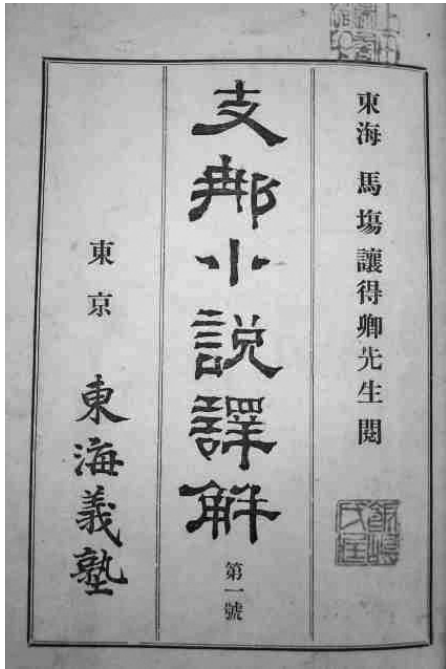 東海 馬塲讓得卿先生閱
支那小說譯解 第一號
東京 東海義塾